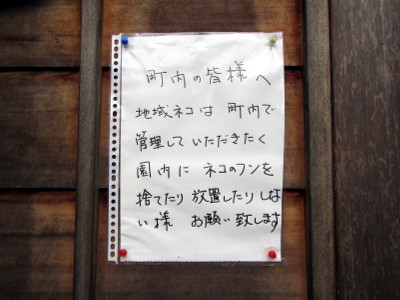 町内の皆様へ
地域ネコは 町内で
管理していただきたく
園内に ネコのフンを
捨てたり 放置したりしな
い様 お願い致します